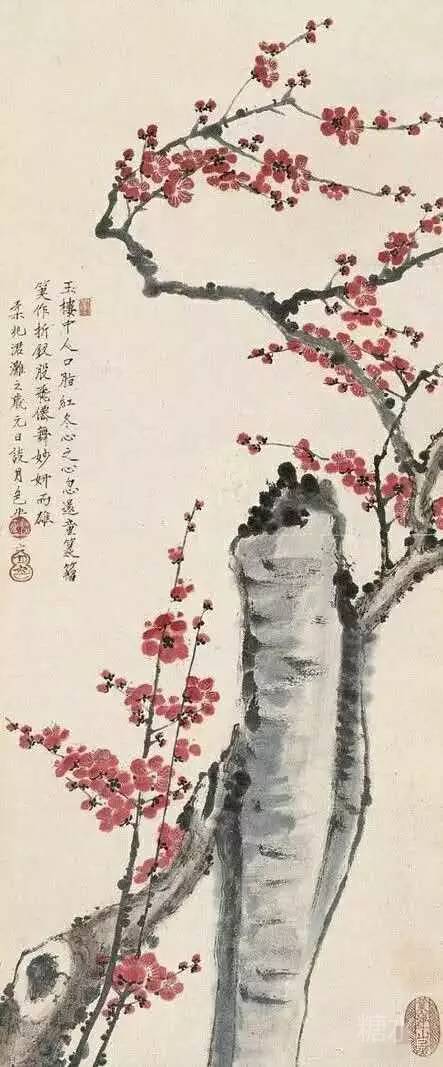 玉樓中人口脂紅冬心之心忽還童篆籀
筆作折釵股飛僊舞妙妍而雄
柔兆涒灘之歲元日談月色